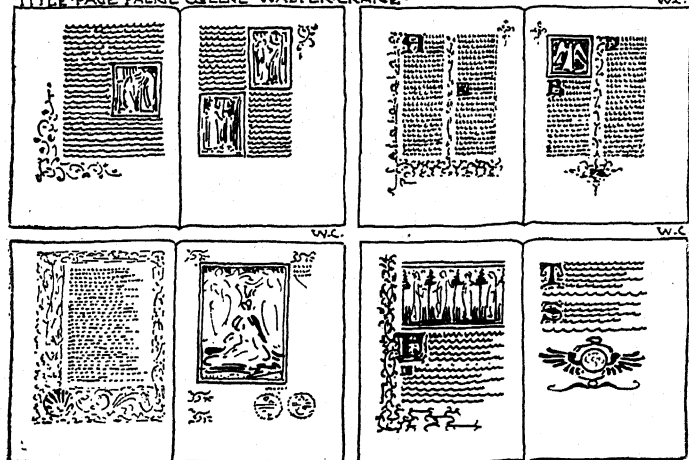 TITLE·PAGE FAERIE QUEENE·WALTER CRANE·
W.C.
A
B
W.C.
W.C
T
H